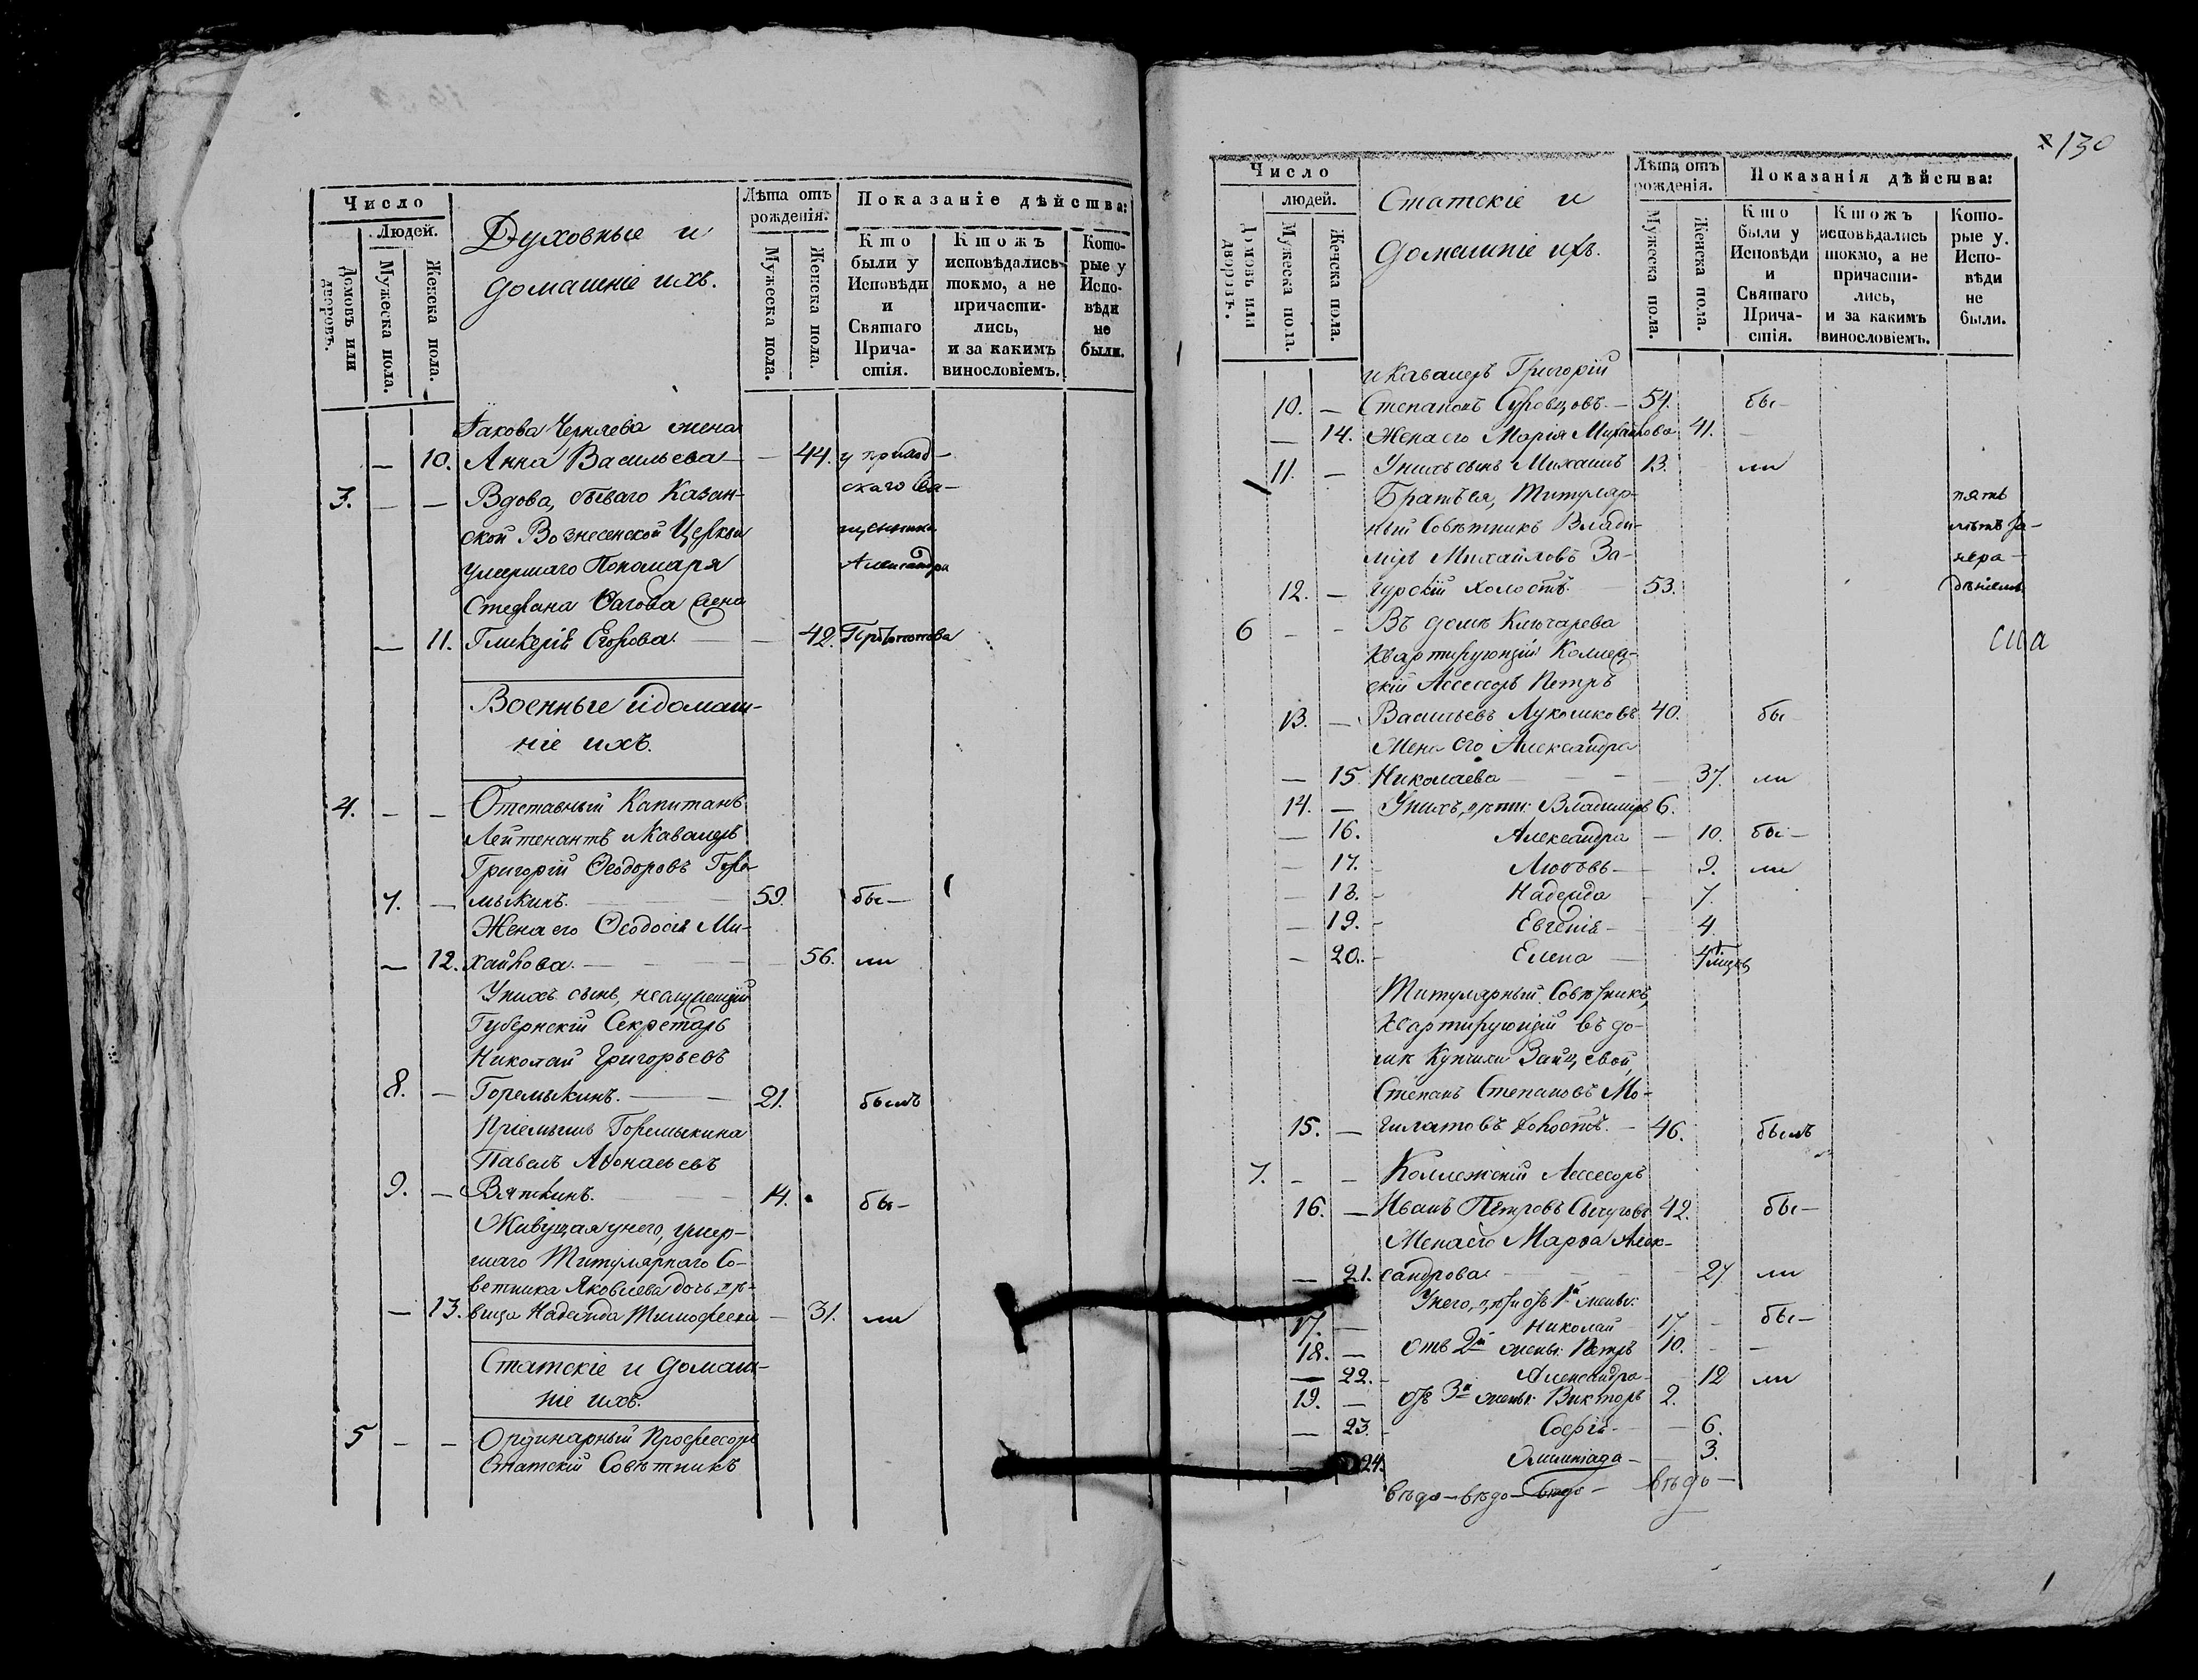 Число
Людей.
Домовъ или дворовъ.
Мужеска пола.
Женска пола.
Духовные и
домашніе ихъ.
Лѣта отъ
рожденія.
Мужеска пола.
Женска пола.
Показаніе дѣйства:
Кто
были у
Исповѣди
и
Святаго
Прича-
стія.
Ктожъ
исповѣдались
токмо, а не
причасти-
лись,
и за какимъ
винословіемъ.
Кото-
рые у
Испо-
вѣди
не
были.
Іакова Черняева жена
— 10. Анна Васильева — — 44. у приход-
3. — — Вдова, бываго Казан- скаго Свя-
ской Вознесенской Церкви щенника
умершаго Пономаря Александра
Стефана жена
— 11. Гликерія Егорова. — — 42.
Военные и домаш-
ніе ихъ.
4. — — Отставный Капитанъ
Лейтенантъ и Кавалеръ
Григорій Ѳеодоровъ Горе-
7. — мыкинъ. — 59. бы—
Жена его Ѳеодосія Ми-
— 12. хайлова. — 56. ли
У нихъ сынъ, неслужащій
Губернскій Секретарь
Николай Григорьевъ
8. — Горемыкинъ. — 21. былъ
Пріемышъ Горемыкина
Павелъ Аѳонасьевъ
9. — Вяткинъ. — 14. бы—
Живущая у него, умер-
шаго Титулярнаго Со-
ветника Яковлева дочь дѣ-
— 13. вица Надежда Тимофеева — 31. ли
Статскіе и домаш-
ніе ихъ.
5 — — Ординарный Профессоръ
Статскій Совѣтникъ
130
Число
людей.
Домовъ или дворовъ.
Мужеска пола.
Женска пола.
Статскіе и
домашніе ихъ.
Лѣта отъ
рожденія.
Мужеска пола.
Женска пола.
Показанія дѣйства:
Кто
были у
Исповѣди
и
Святаго
Прича-
стія.
Ктожъ
исповѣдались
токмо, а не
причасти-
лись,
и за какимъ
винословіемъ.
Кото-
рые у.
Испо-
вѣди
не
были.
и Кавалеръ Григорій
10. — Степановъ Суровцовъ. — 54. бы—
— 14. Жена его Марія Михайлова 41. —
11. — У нихъ сынъ Михаилъ 13. ли
Братъ ея, Титуляр- пять
ный Совѣтникъ Влади- лѣтъ за
міръ Михайловъ За- нера-
12. — гурскій холостъ. 53. дѣніемъ
6 — — Въ домѣ Ключарева
квартирующій Коллеж-
скій Ассессоръ Петръ
13. — Васильевъ Лукошковъ 40. бы—
Жена его Александра
— 15. Николаева — 37. ли
14. — У нихъ дѣти: Владиміръ 6.
— 16. Александра — 10. бы—
— 17. Любовь — 9. ли
— 18. Надежда — 7.
— 19. Евгенія — 4.
— 20. Елена —
Титулярный Совѣтникъ,
квартирующій въ до-
мѣ Купчихи Зайцевой,
Степанъ Степановъ Мо-
15. — гилатовъ холостъ. — 46. былъ
7. — — Коллежскій Ассесоръ
16. — Иванъ Петровъ 42. бы—
Жена его Марѳа Алек-
— 21. сандрова — 27. ли
У него, дѣти отъ 1й жены:
17. — Николай 17. — бы—
18. — отъ 2й жены: Петръ 10. — —
— 22. — Александра — 12 ли
19. — отъ 3й жены: Викторъ 2.
— 23. — Софія — 6.
24. Олимпіада — 3.